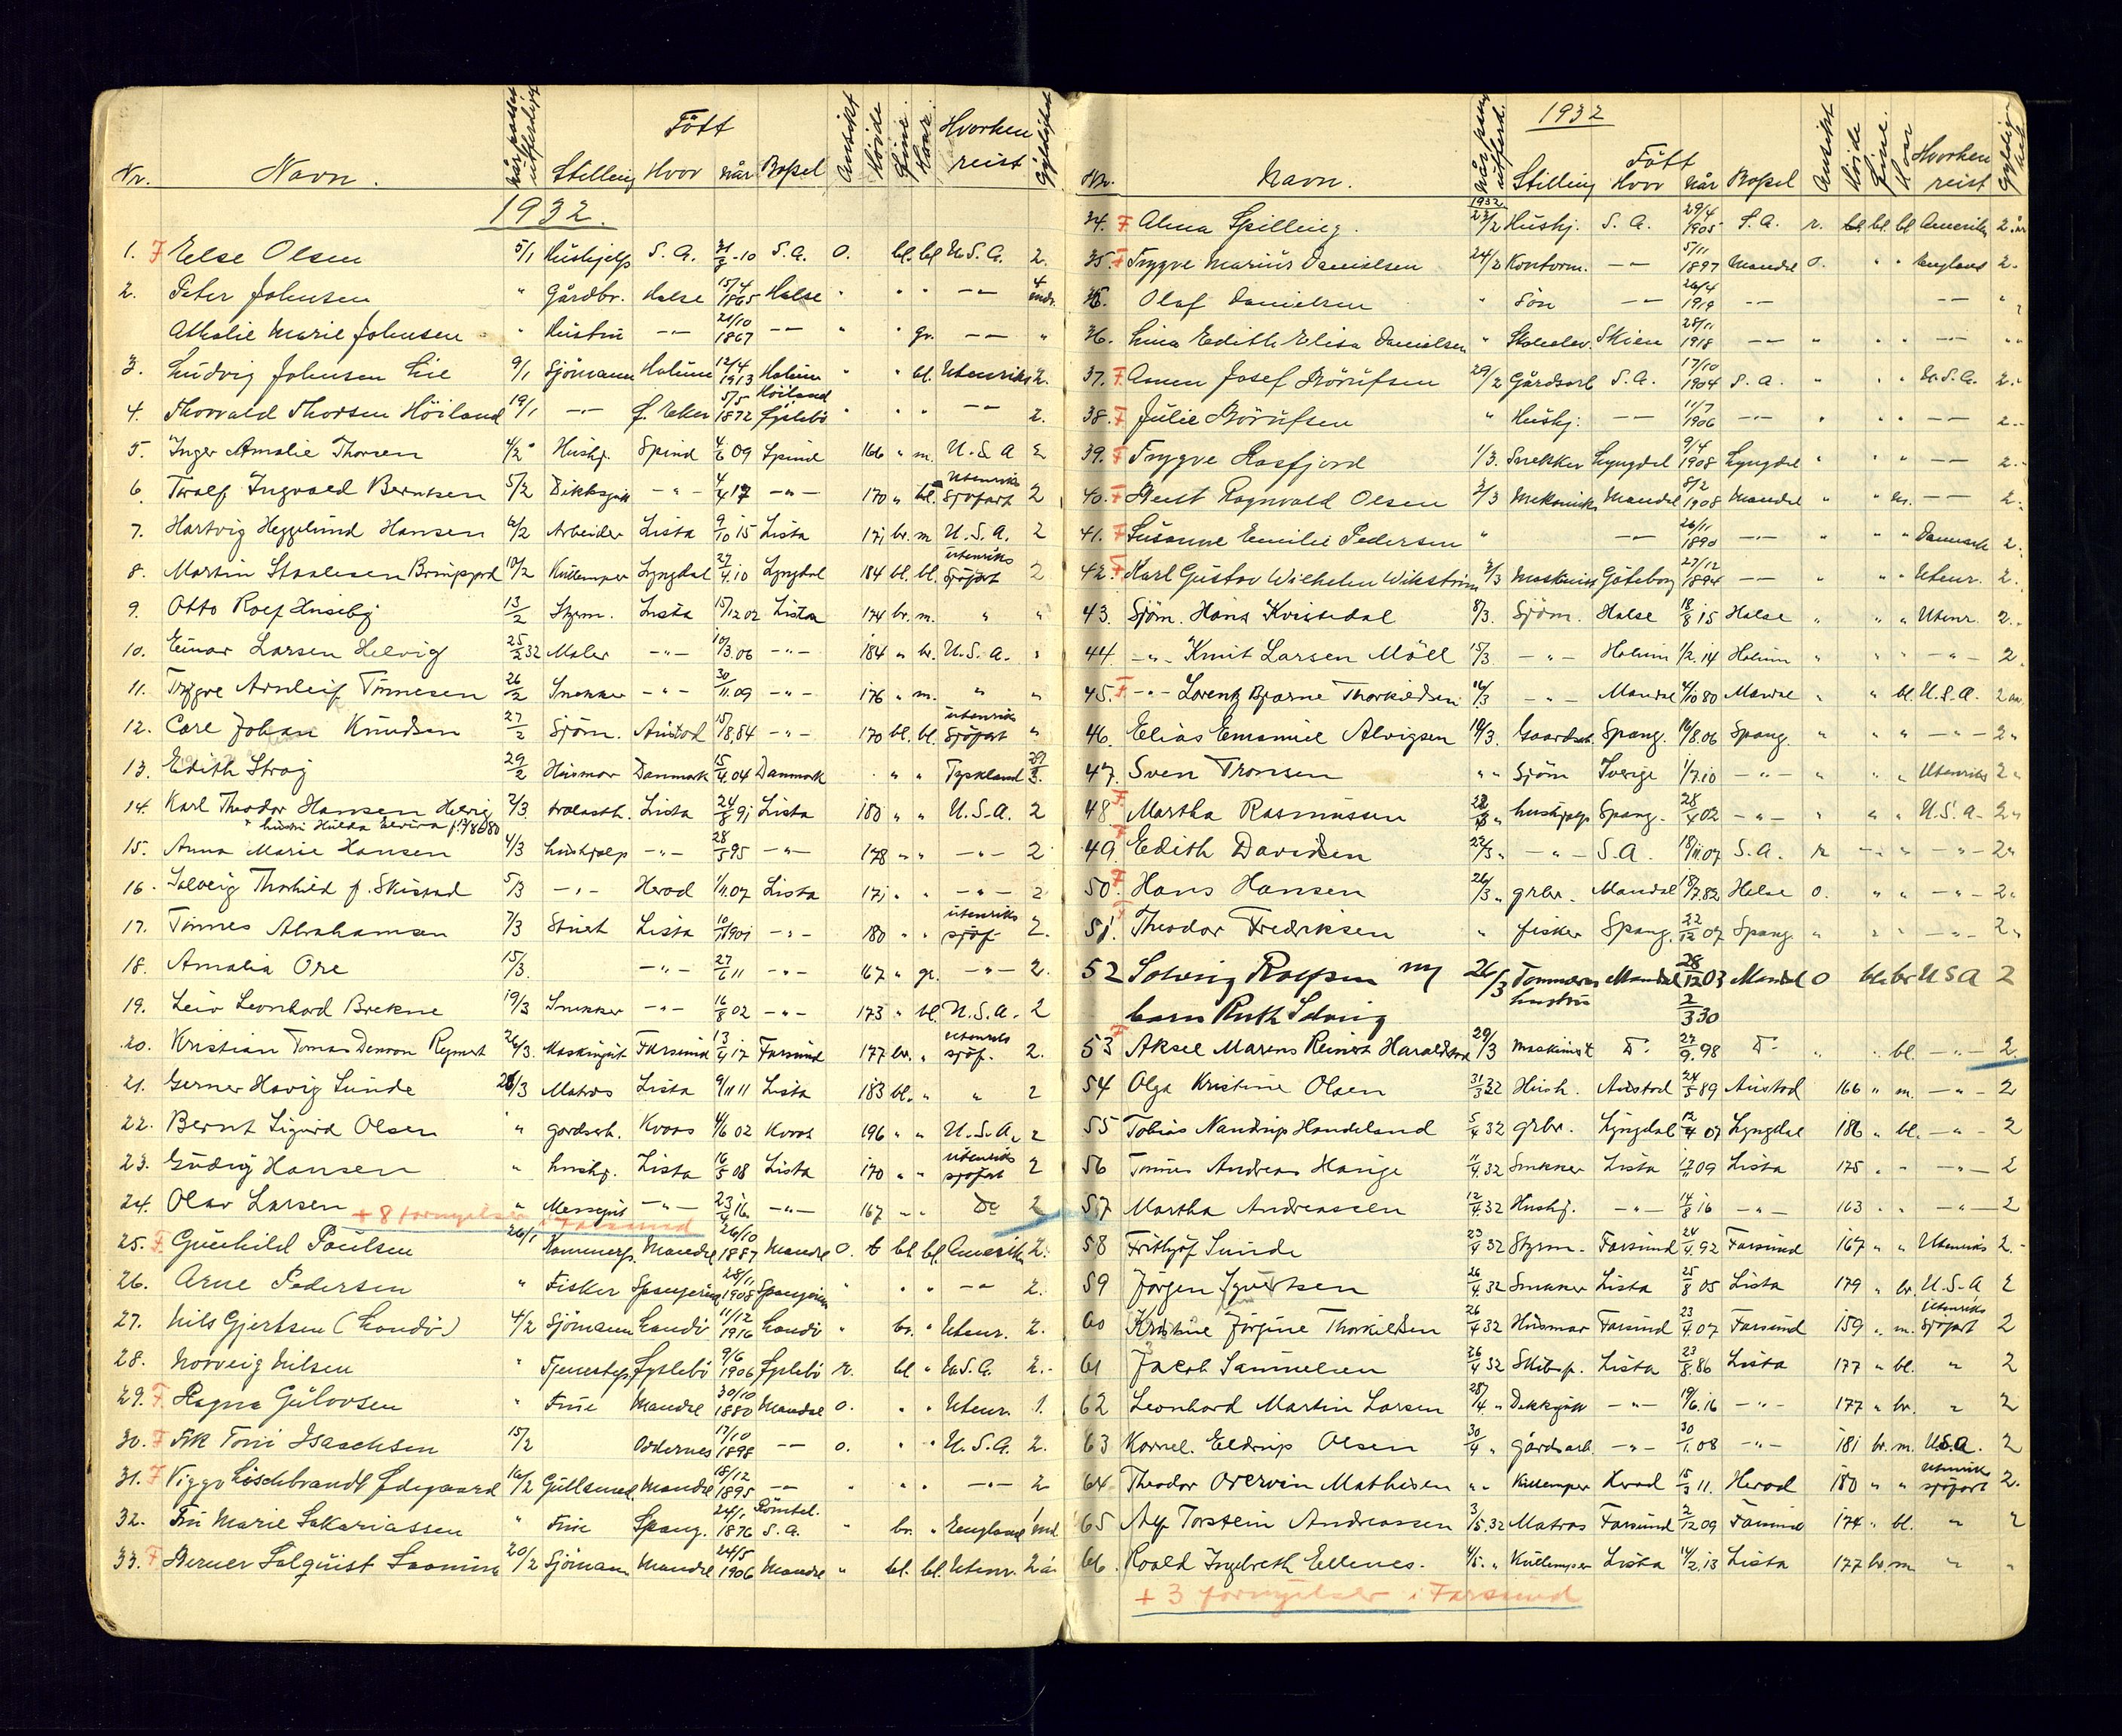 Nr. Navn. Når passet utferdiget Stilling Född Hvor når Bopel Ansikt Höide Öine Haar Hvorhen reist Gyldighet
1932.
1. F Else Olsen 5/1 Hushjelp S. A. 31/8 -10 S. A. O. bl. bl. U. S. A. 2.
2. Peter Johnsen " Gårdbr. Halse 15/4 1865 Halse " " " —"— 4 mdr.
Athalie Marie Johnsen " Hustru —"— 21/10 1867 —"— " " gr. —"— "
3. Ludvig Johnsen Lie 9/1 Sjömann Holum 12/4 1913 Holum " " bl. Utenriks 2.
4. Thorvald Thorsen Höiland 19/1 —"— f. Eker 5/5 1872 Höiland Öjslebö " " " —"— 2.
5. Inger Amalie Thorsen 4/2 Hushj. Spind 4/6 09 Spind 166 " m. U. S. A 2
6. Torolf Ingvald Berntsen 5/2 Dekksgutt —"— 4/4 17 —"— 170 " bl. Utenriks Sjöfart 2
7. Hartvig Hegglund Hansen 6/2 Arbeider Lista 9/10 15 Lista 171 br. m U. S. A. 2
8. Martin Staalesen Bringsjord 10/2 Kullemper Lyngdal 27/4.10 Lyngdal 184 bl. bl. utenriks Sjöfart 2
9. Otto Rolf Huseby 13/2 Styrm. Lista 15/12 02 Lista 174 br. m. " "
10. Einar Larsen Helvig 25/2 32 Maler —"— 10/3.06 —"— 184 " br. U. S. A. "
11. Trygve Arnleif Tönnesen 26/2 Snekker —"— 30/11.09 —"— 176 " m. " "
12. Carl Johan Knudsen 27/2 Sjöm. Austad 15/8.84 —"— 170 bl. bl. utenriks Sjöfart "
13. Edith Stray 29/2 Husmor Danmark 15/4.04 Danmark " " Tyskland 29/3.
14. Karl Theodor Hansen Helvig 2/3. Lista 24/8 91 Lista 180 " " U. S. A. 2
" hustru Hulda Elvira
15. Anna Marie Hansen 4/3 hushjelp —"— 28/5 95 —"— 178 " " —"— 2
16. Solveig Thorhild f. Skistad 5/3 —"— Herad 1/11.07 Lista 171 " " —"— 2
17. Tönnes Abrahamsen 7/3 Stuert Lista 10/1 1901 —"— 180 " " utenriks sjöf. 2.
18. Amalia Ore 15/3. —"— 27/6 11 —"— 167 " gr. —"— 2.
19. Leiv Leonhard Brekne 19/3 Snekker —"— 16/8 02 —"— 173 " bl. U. S. A. 2
20. Kristian Tomas Denvon Reymert 26/3. Maskingut Farsund 13/4 17 Farsund 177 br. " utenriks sjöf. 2.
21. Gerner Havig Sunde 26/3 Matros Lista 9/11 11 Lista 183 bl. " " 2
22. Bernt Sigurd Olsen " gardsarb. Kvaas 4/6 02 Kvaas 196 " " U. S. A. 2
23. Gudrig Hansen " hushj. Lista 16/5 08 Lista 170 " " utenriks sjöfart 2
24. Olav Larsen " Messgut —"— 23/4 16 —"— 167 " " Do 2
+ 8 fornyelser i Farsund
25. F Gunhild Poulsen 26/1 Kammerp. Mandal 26/10 1887 Mandal O. bl bl. Amerika 2.
26. Arne Pedersen " Fisker Spangereid 28/11 1908 Spangereid " " " —"— 2.
27. Nils Gjertsen (Landö) 4/2 Sjömann Landö 11/12 1916 Landö " br. " Utenr. 2.
28. Norveig Nilsen " Tjenestep. Öyslebö 9/6 1906 Öyslebö r. bl " U. S. A. 2.
29. F Ragna Gulovsen " Frue Mandal 30/10 1880 Mandal O. " " Utenr. 1.
30. F Frk Toni Isachsen 15/2 Oddernes 17/10 1898 —"— O. " " U. S. A. 2.
31. F Viggo Lischbrandt Ödegaard 16/2 Gullsmed. Mandal 18/12 1895 —"— " " " —"— 2
32. Fru Marie Sakariassen " Frue Spang. 24/1 1876 S. A. " br. " England 1 md.
33. F Werner Salquist Saanum 20/2 Sjömann Mandal 24/5 1906 Mandal " bl. bl. Utenr. 2 år
1932
Nr. Navn. Når pass utferd. Stilling Född Hvor Når Bopel Ansikt Höide Öine. Haar Hvorhen reist Gyldighet
1932
34. F Alma Spilling. 23/2 Hushj. S. A. 29/4 1905 S. A. r. bl bl. bl Amerika 2 år
35. F Trygve Marius Danielsen 24/2 Kontorm. —"— 5/11 1897 Mandal O. " " England 2.
Olaf Danielsen " Sön —"— 26/4 1919 —"— —"— "
36. Lina Edith Elisa Danielsen " Skoleelev. Skien 28/11 1918 —"— " " " —"— "
37. F Amen Josef Börufsen 29/2 Gårdsarb S. A. 17/10 1904 S. A. " " " U. S. A. 2.
38. F Julie Börufsen " Hushj. —"— 11/7 1906 —"— " " " —"— 2.
39. F Trygve Rosfjord 1/3. Snekker Lyngdal 9/4 1908 Lyngdal " " " —"— 2.
40. F Aust Ragnvald Olsen 2/3 Mekaniker Mandal 8/2 1908 Mandal " " m. —"— 2.
41. F Susanne Emilie Pedersen " —"— 26/11 1890 —"— " " " Danmark 2.
42. F Karl Gustav Wilhelm Wikström 2/3 Maskinist Göteborg 27/12 1894 —"— " " " Utenr. 2.
43. Sjöm. Hans Kvisedal 8/3. Sjöm. Halse 18/8 15 Halse " " " Utenr. 2.
44. —"— Knut Larsen Möll 15/3 —"— Holum 1/2.14 Holum " " " —"— 2.
45. F —"— Lorentz Bjarne Thorkildsen 16/3 —"— Mandal 4/10 80 Mandal " " bl. U. S. A. 2 aar
46. Elias Emanuel Alvigsen 19/3. Gaardsarb. Spang. 16/8.06 Spang. " " " —"— 2 "
47. Sven Tronsen " " Sjöm Sverige 1/7.10 —"— " " " Utenriks 2 "
48. F Martha Rasmussen 22/3 " hushjelp Spang. 28/4 02 —"— " " " U. S. A. 2 "
49. F Edith Davidsen 22/3 " —"— S. A. 18/11.07 S. A. r —"— " —"— 2 "
50. F Hans Hansen 26/3 " grbr. Mandal 18/7.82 Halse O. " " —"— 2 "
51. F Theodor Fredriksen " fisker Spang. 22/12 07 Spang " " " —"— 2 "
52 Solveig Rolfsen ny 26/3 Tömmerm. hustru Mandal 28/12 03 Mandal O bl br USA 2
barn Ruth Solveig 2/3 30
53 F Aksel Marens Reinert Haraldstad 29/3 Maskinist F. 27/9. 98 F. " " bl. —"— 2
54 Olga Kristine Olsen 31/3 32 Hush. Austad 24/5 89 Austad 166 " m. —"— 2
55 Tobias Nandrup Handeland 5/4 32 grbr. Lyngdal 12/4 07 Lyngdal 186 " bl. —"— 2
56 Tönnes Andreas Hauge 11/4.32 Snekker Lista 17/11 09 Lista 175 " " —"— 2
57 Martha Andreassen 12/4.32 Hushj. —"— 14/8 16 —"— 163 " " —"— 2
58 Frithjof Sunde 23/4 32 Styrm. Farsund 24/4.92 Farsund 167 " " Utenriks 2.
59 Jörgen Syvertsen 26/4.32 Snekker Lista 25/8 05 Lista 179 " br. U. S. A 2
60 Kristine Jörgine Thorkildsen 26/4 32 Husmor Farsund 23/4.07 Farsund 159 " m. Utenriks Sjöfart 2
61 Jacob Samuelsen 26/4 32 Skibsf. Lista 23/8.86 Lista 177 " bl. " 2
62 Leonhard Martin Larsen 28/4 " Dekksgutt —"— 19/6.16 —"— 177 " br. " 2
63 Kornel. Eldrup Olsen 30/4 " gårdsarb. —"— 30/1.08 —"— 181 br. m. U.S.A. 2
64 Theodor Overvin Mathisen " " Kullemper Herad 15/3 11. Herad 180 " " utenriks sjöfart 2.
65 Alf Torstein Andreassen 3/5.32 Matros Farsund 2/12 09 Farsund 174 " bl. " 2
66. Roald Ingbreth Ellenes. 4/5. " Kullemper Lista 14/2.13 Lista 177 br. m " "
+ 3 fornyelser i Farsund